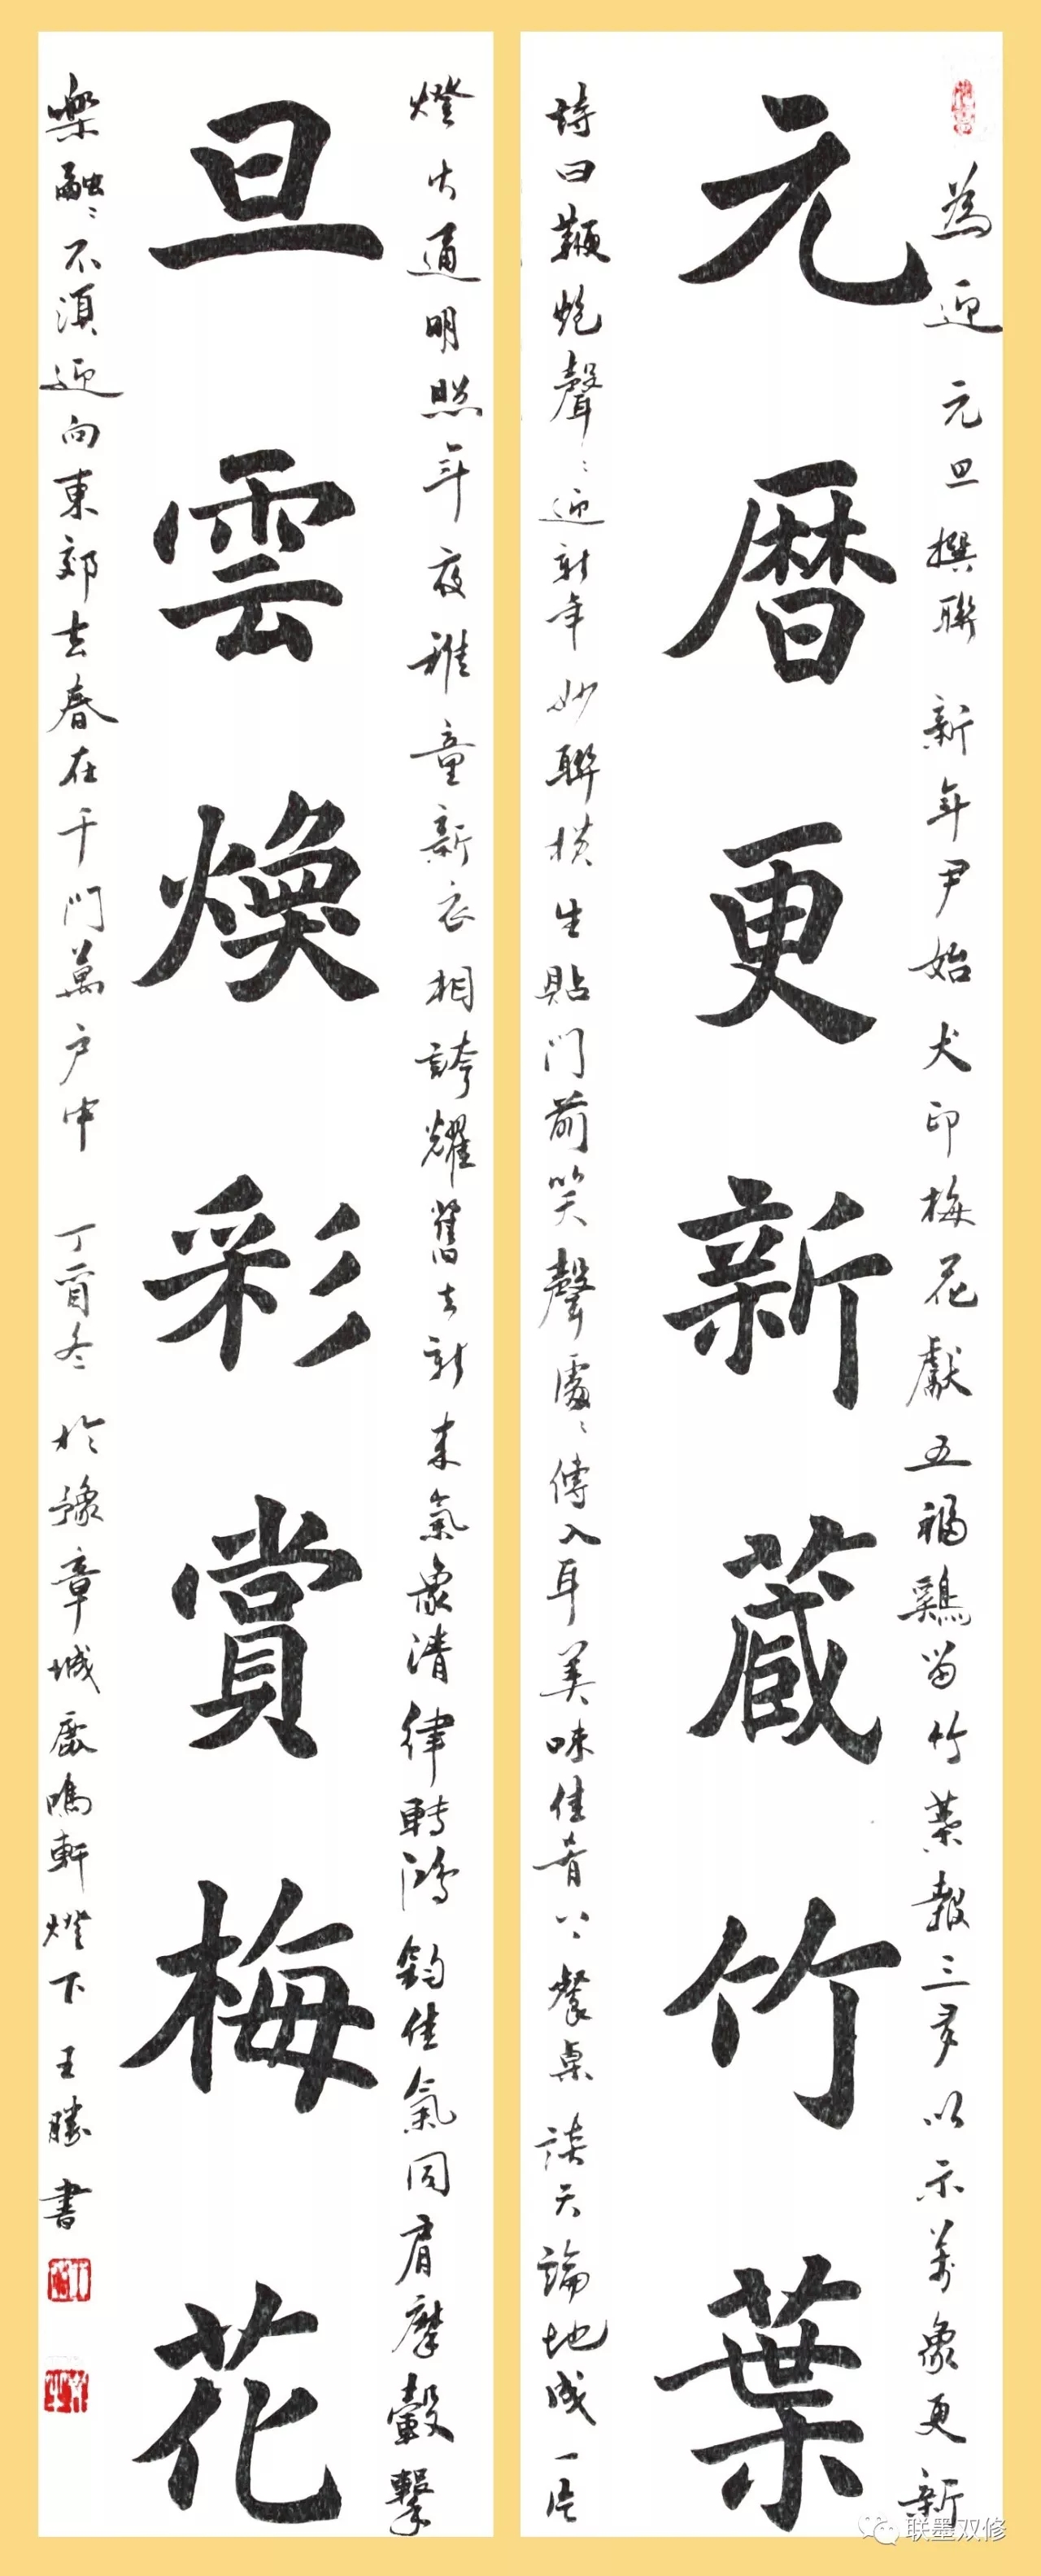 為迎 元旦撰聯 新年尹始犬印梅花獻五福鷄留竹葉報三多以示萬象更新
元曆更新蔵竹葉
詩曰鞭炮聲聲迎新年妙聯橫生貼门前笑聲處處傳入耳美味佳肴上餐桌談天論地成一片
燈火通明照年夜稚童新衣相誇耀舊去新来氣象清律轉鴻鈞佳氣同肩摩轂擊
旦雲煥彩賞梅花
樂融融不須迎向東郊去春在千門萬户中 丁酉冬 於豫章城鹿鳴軒燈下 王勝書
联墨双修